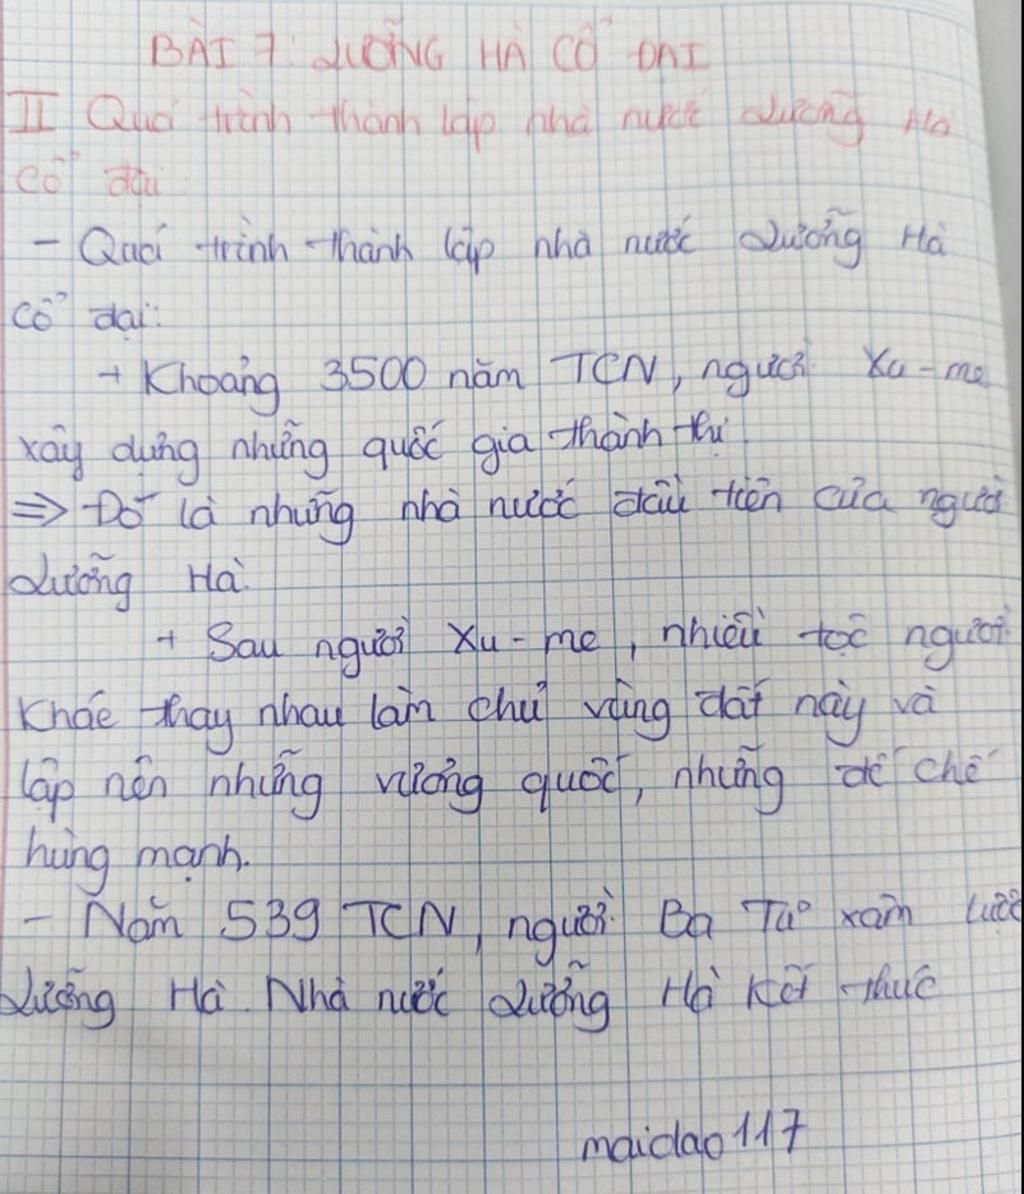 BÀI 7: LƯỠNG HÀ CỔ ĐẠI
II Quá trình thành lập nhà nước Lưỡng Hà
cổ đại
- Quá trình thành lập nhà nước Lưỡng Hà
cổ đại:
+ Khoảng 3500 năm TCN, người Xu-me
xây dựng những quốc gia thành thị
=> Đó là những nhà nước đầu tiên của người
Lưỡng Hà.
+ Sau người Xu-me, nhiều tộc người
khác thay nhau làm chủ vùng đất này và
lập nên những vương quốc, những đế chế
hùng mạnh.
- Năm 539 TCN, người Ba Tư xâm lược
Lưỡng Hà. Nhà nước Lưỡng Hà kết thúc
maidao117